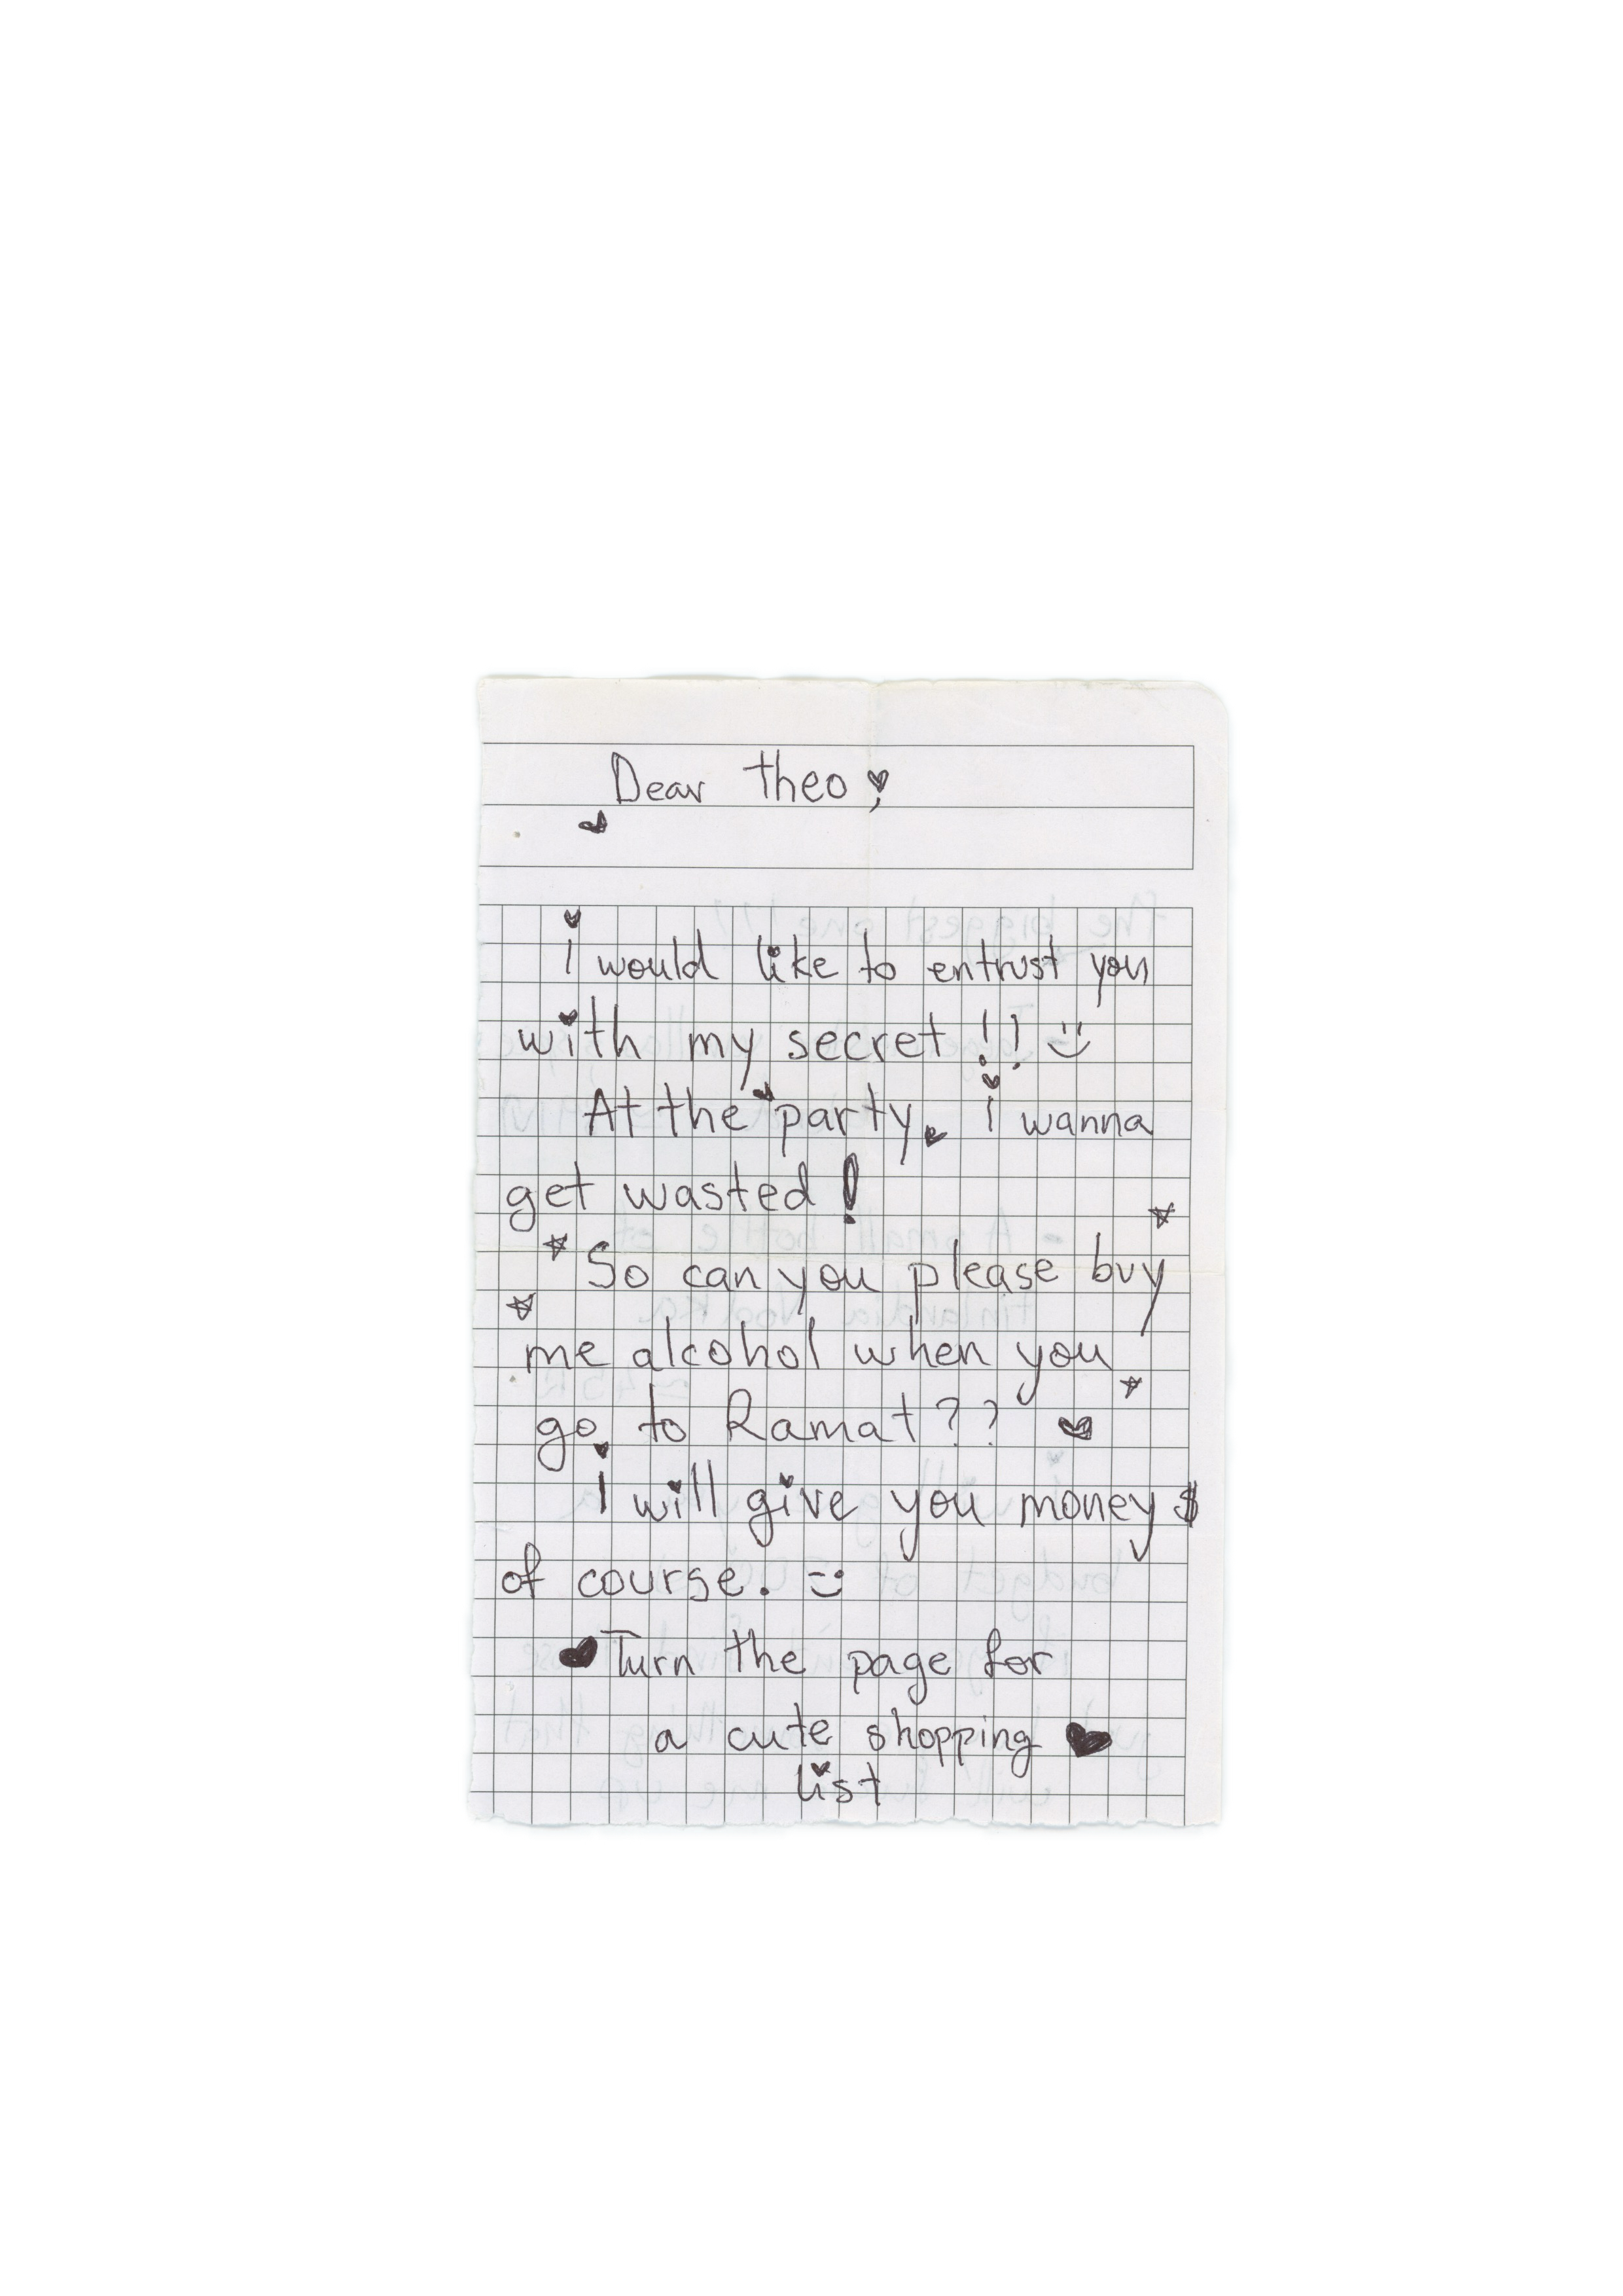 Dear theo,
i would like to entrust you
with my secret !! :)
At the party, i wanna
get wasted !
So can you please buy
me alcohol when you
go to Ramat ??
i will give you money $
of course. :)
Turn the page for
a cute shopping
list